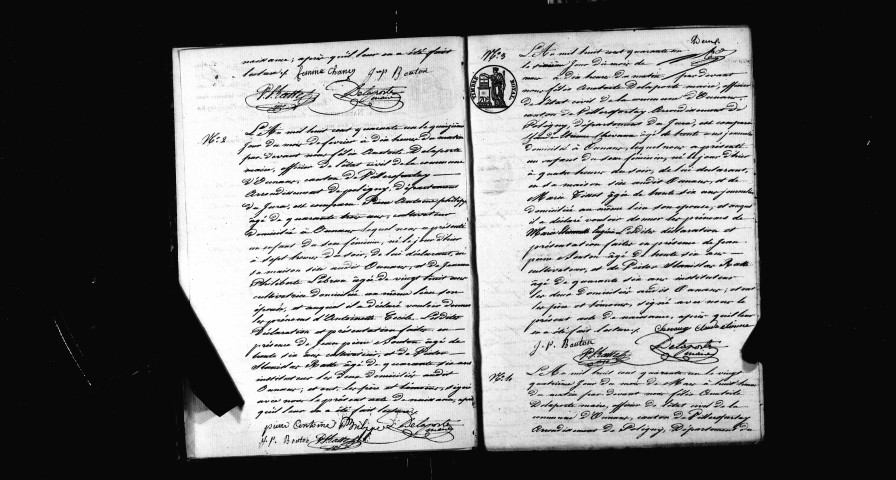 naissance, après qu'il leur en a été fait
lecture. Jeanne Chany J-p. Bouton
Delaporte
maire
N° 2
L'An mil huit cent quarante un le quinzième
jour du mois de février à dix heures du matin
par devant nous félix Anatoile Delaporte
maire, officier de l'état civil de la commune
d'Ounans, canton de Villersfarlay
Arrondissement de poligny, Département
du Jura, est comparu Pierre Antoine philippe
âgé de quarante trois ans, cultivateur
domicilié à Ounans, lequel nous a présenté
un enfant du sexe féminin, né le jour d'hier
à sept heures du soir, de lui déclarant, en
sa maison sise audit Ounans, et de Jeanne
Philiberte Lebrun âgée de vingt huit ans
cultivatrice domiciliée au même lieu son
épouse, et auquel il a déclaré vouloir donner
les prénoms d'Antoinette Cécile. Lesdites
Déclaration et présentation faites en
présence de Jean pierre Bouton âgé de
trente six ans cultivateur, et de Pierre
Stanislas âgé de quarante six ans
instituteur les deux domiciliés audit
Ounans; et ont, les père et témoins, signé
avec nous le présent acte de naissance, après
qu'il leur en a été fait lecture.
pierre antoine Philippe Delaporte
maire
J.-P. Bouton
Deux
N° 3
L'An mil huit cent quarante un
le jour du mois de
mars à dix heures du matin, par devant
nous félix Anatoile Delaporte maire, officier
de l'état civil de la commune d'Ounans,
canton de Villersfarlay, Arrondissement de
Poligny, département du Jura, est comparu
âgé de trente ans journalier
domicilié à Ounans, lequel nous a présenté
un enfant du sexe féminin, né le jour d'hier
à quatre heures du soir, de lui déclarant,
en sa maison sise audit Ounans, et de
Marie âgée de trente six ans journalière
domiciliée au même lieu son épouse, et auquel
il a déclaré vouloir donner les prénoms de
Marie. Lesdites déclaration et
présentation faites en présence de Jean
pierre Bouton âgé de trente six ans
cultivateur, et de Pierre Stanislas
âgé de quarante six ans instituteur
les deux domiciliés audit Ounans; et ont
les père et témoins, signé avec nous le
présent acte de naissance, après qu'il leur
en a été fait lecture.
J.-P. Bouton Delaporte
maire
N° 4
L'An mil huit cent quarante un le vingt
quatrième jour du mois de Mars à huit heures
du matin par devant nous félix Anatoile
Delaporte maire, officier de l'état civil de la
commune d'Ounans, canton de Villersfarlay
Arrondissement de Poligny, Département du